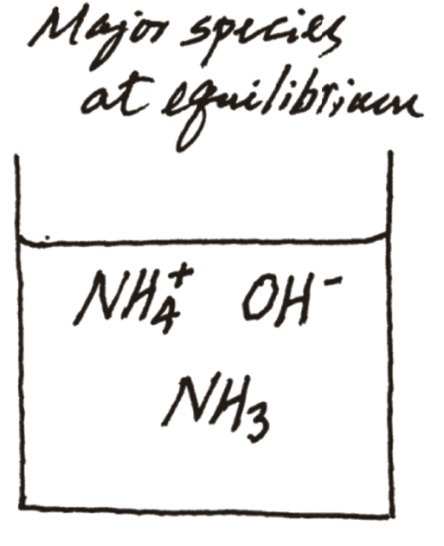 Major species
at equilibrium
NH₄⁺ OH⁻
NH₃